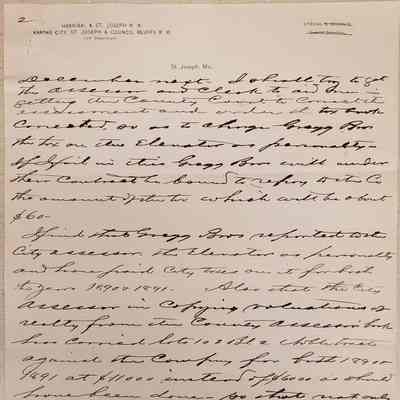 2
HANNIBAL & ST. JOSEPH R. R.
KANSAS CITY, ST. JOSEPH & COUNCIL BLUFFS R. R.
St. Joseph, Mo.,
December next. I shall try to get
the assessor and Clerk to aid me in
getting the County Court to correct the
assessment and order the tax book
corrected, so as to charge Gregg Bros
the tax on the Elevator as personalty.
If I fail in this Gregg Bros will under
their Contract be bound to refund to the Co
the amount of the tax which will be about
$60-
I find that Gregg Bros reported to the
City assessor the Elevator as personalty
and have paid City taxes on it for both
the years 1890 & 1891. Also that the City
assessor in copying valuations of
realty from the County Assessors book
has carried lots 1 & 2 Blk 2
against the Company for both 1890 &
1891 at $11000 instead of $6000 as should
have been done - so that not only